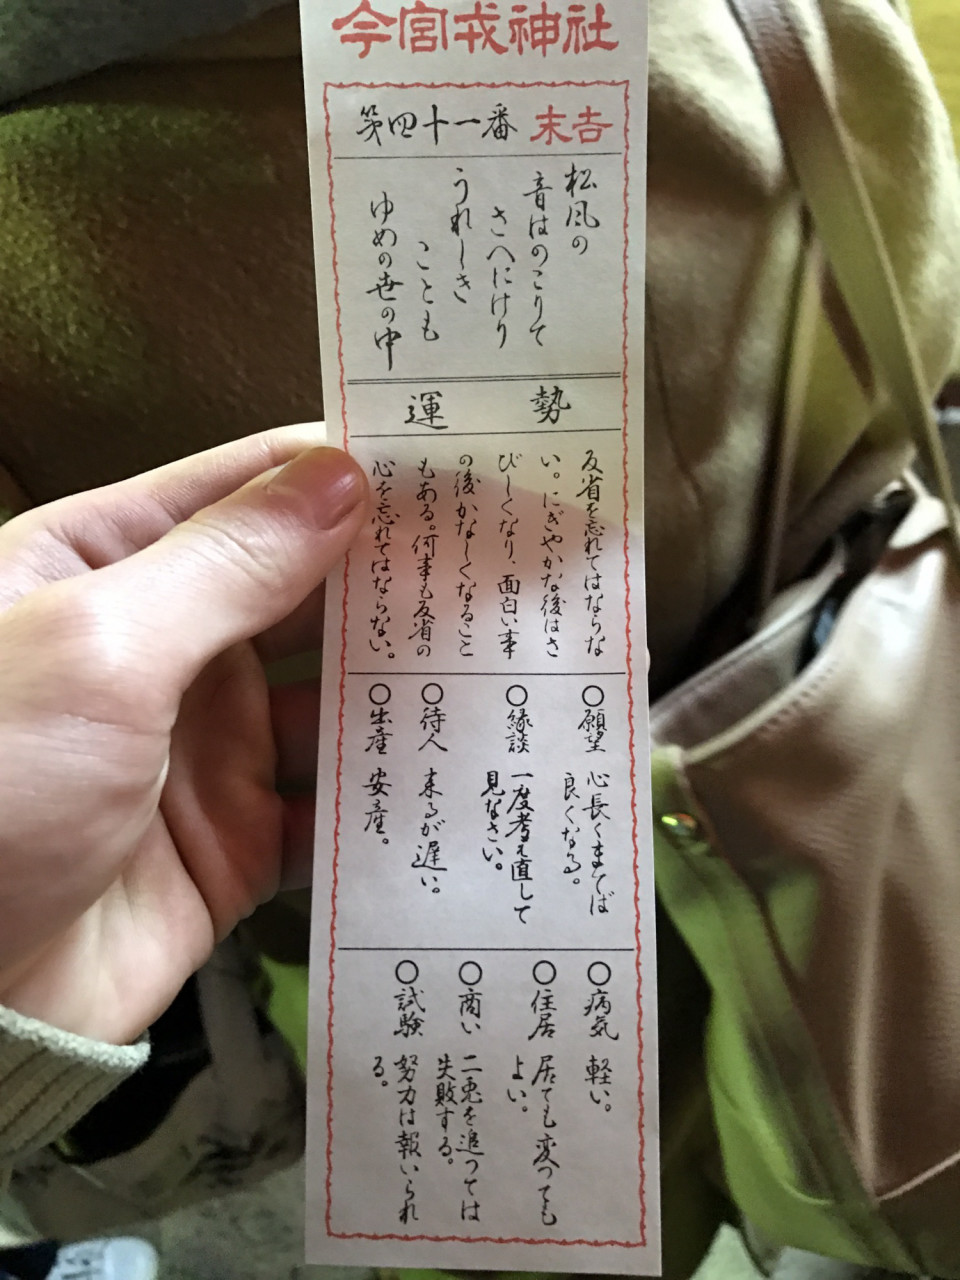 今宮戎神社
第四十一番 末吉
松風の
音はのこりて
さへにけり
うれしき
ことも
ゆめの世の中
運勢
反省を忘れてはならな
い。にぎやかな後はさ
びしくなり、面白い事
の後かなしくなること
もある。何事も反省の
心を忘れてはならない。
○願望 心長くまてば
良くなる。
○縁談 一度考え直して
見なさい。
○待人 来るが遅い。
○出産 安産。
○病気 軽い。
○住居 居ても変っても
よい。
○商い 二兎を追っては
失敗する。
○試験 努力は報いられ
る。